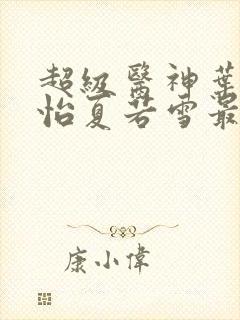 超級醫神葉
怡夏若雪最
康小偉